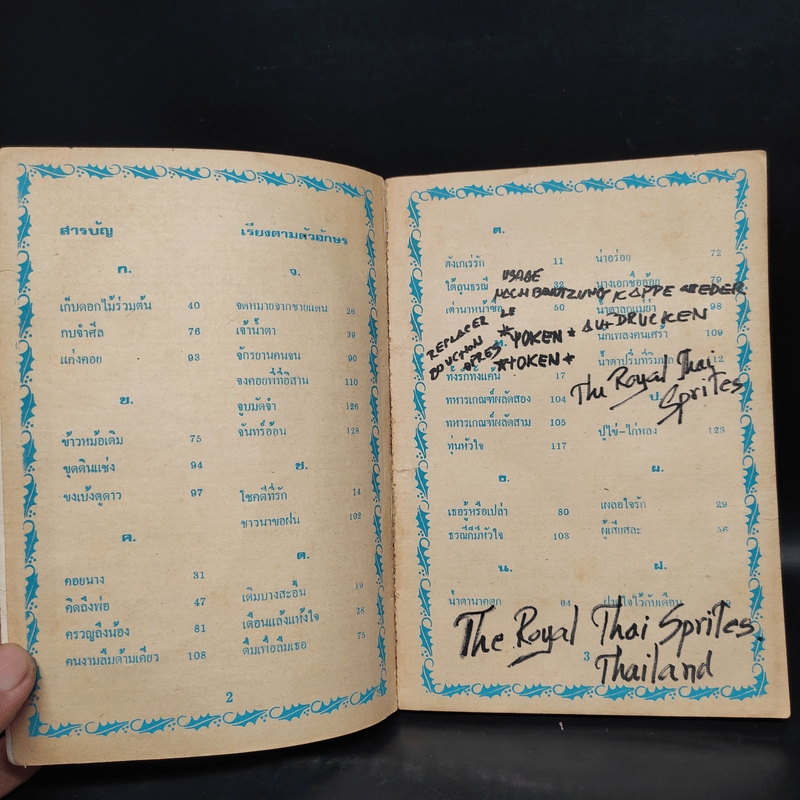 สารบัญ เรียงตามตัวอักษร
ก.
เก็บดอกไม้ร่วมต้น 40
กบจำศีล 76
แก่งคอย 93
ข.
ข้าวหม้อเดิม 75
ขุดดินแช่ง 94
ขงเบ้งดูดาว 97
ค.
คอยนาง 31
คิดถึงพ่อ 47
ครวญถึงน้อง 81
คนงามลืมด้ามเคียว 108
จ.
จดหมายจากชายแดน 26
เจ้าน้ำตา 39
จักรยานคนจน 90
จงคอยพี่ที่อีสาน 110
จูบมัดจำ 126
จันทร์อ้อน 128
ช.
โชคดีที่รัก 14
ชาวนาขอฝน 102
ด.
เดิมบางสะอื้น 19
เดือนแล้งแห้งใจ 28
ดื่มเพื่อลืมเธอ 75
2
ต.
ตังเกเร่รัก 11
ใต้ถุนธรณี 32
เต่านาหน้าซื่อ
ทั้งรักทั้งแค้น 17
ทหารเกณฑ์ผลัดสอง 104
ทหารเกณฑ์ผลัดสาม 105
ทุ่นหัวใจ 117
ธ.
เธอรู้หรือเปล่า 80
ธรณีก็มีหัวใจ 103
น.
น้ำตานาคตก
น่าอร่อย 72
นางเอกชื่ออ้อย 79
98
นักเพลงคนเศร้า 109
12
ป.
ปูไข่-ไก่หลง 123
ผ.
เผลอใจรัก 29
ผู้เสียสละ 56
ฝ.
USAGE
REPLACER
*YOKEN*
*YOKEN*
DRUCKEN
The Royal Thai
Sprites
The Royal Thai Sprites.
Thailand
3